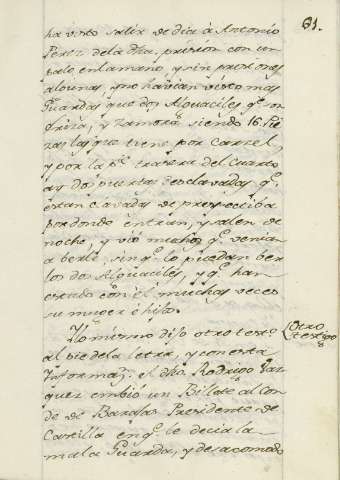 81.
ha visto salir de dia á Antonio
Perez dela dha. prision con un
palo enlamano, y sin prisiones
algunas, y no havian visto mas
Guardas que dos Alguaciles qe. son
y Zamora, siendo 16. Pie
zas las que tiene por Carzel,
y por la pte. trasera del Cuarto
ay dos puertas desclavadas qe.
estan clavadas de prespectiba
pordonde entran, y salen de
noche, y vió muchos qe. venian
a berle, sin qe. lo puedan ber
los dos Alguaciles, y qe. han
estado con él muchas veces
su muger é hijos.
Ylo mismo dijo otro testo.
al pie dela letra, y con esta
Informaon. el dho. Rodrigo Vaz
quez embió un Billete al Con
de de Barajas Presidente de
Castilla en qe. le decia la
mala Guarda, y desacomodo
Otro
testigo